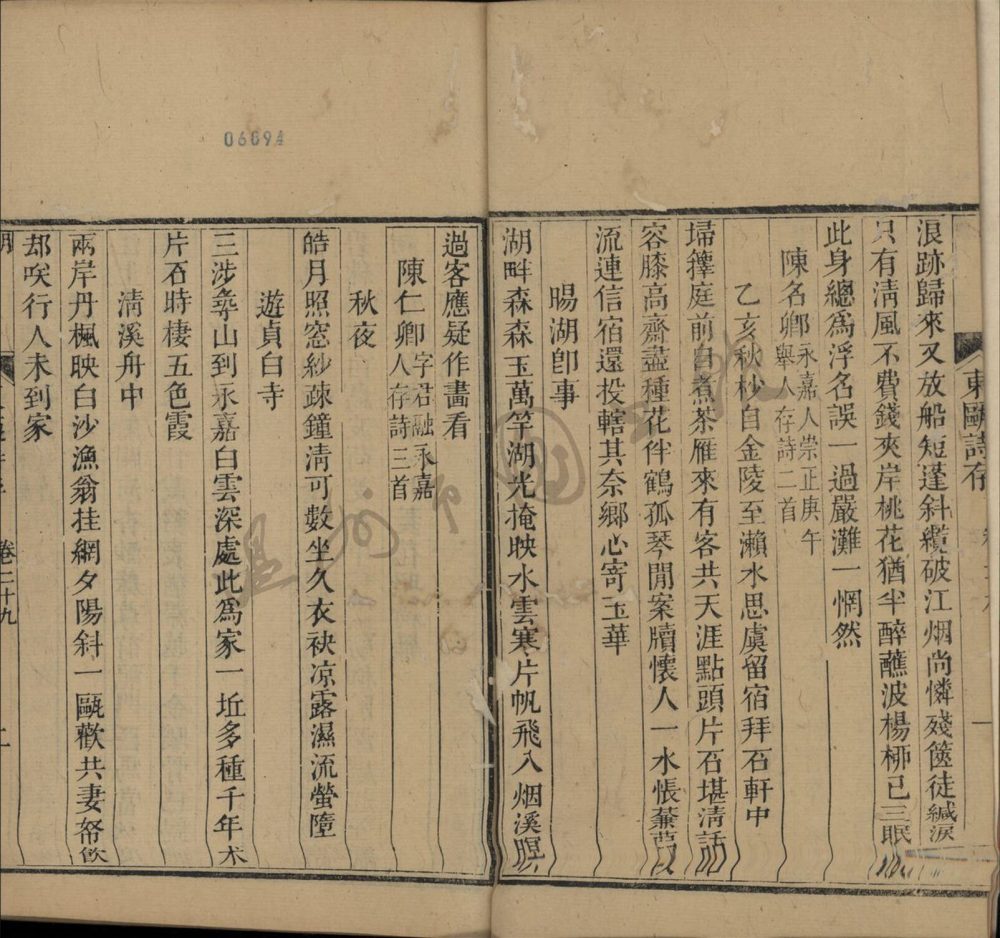 東甌詩存
浪跡歸來又放船短蓬斜纜破江烟尚憐殘篋徒緘淚
只有清風不費錢夾岸桃花猶半醉蘸波楊栁已三眠
此身總為浮名誤一過嚴灘一惘然
陳名卿永嘉人崇正庚午舉人存詩二首
乙亥秋杪自金陵至瀨水思虞留宿拜石軒中
埽籜庭前自煮茶雁來有客共天涯點頭片石堪清話
容膝高齋盡種花伴鶴孤琴閒案牘懷人一水悵蒹葭
流連信宿還投轄其奈鄉心寄玉華
暘湖卽事
湖畔森森玉萬竿湖光掩映水雲寒片帆飛入烟溪暝
過客應疑作畵看
陳仁卿字君融永嘉人存詩三首
秋夜
皓月照窓紗疎鐘淸可數坐久衣袂凉露濕流螢墮
遊貞白寺
三涉彝山到永嘉白雲深處此為家一坵多種千年朮
片石時棲五色霞
淸溪舟中
兩岸丹楓映白沙漁翁挂網夕陽斜一甌歡共妻帑飲
却咲行人未到家
卷二十九
二
06894